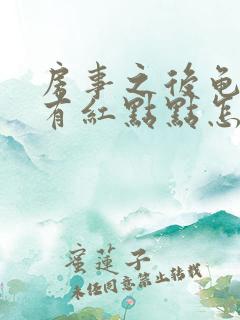 房事之後龟
有紅點點怎
蜜蓮子
未經同意禁止轉載